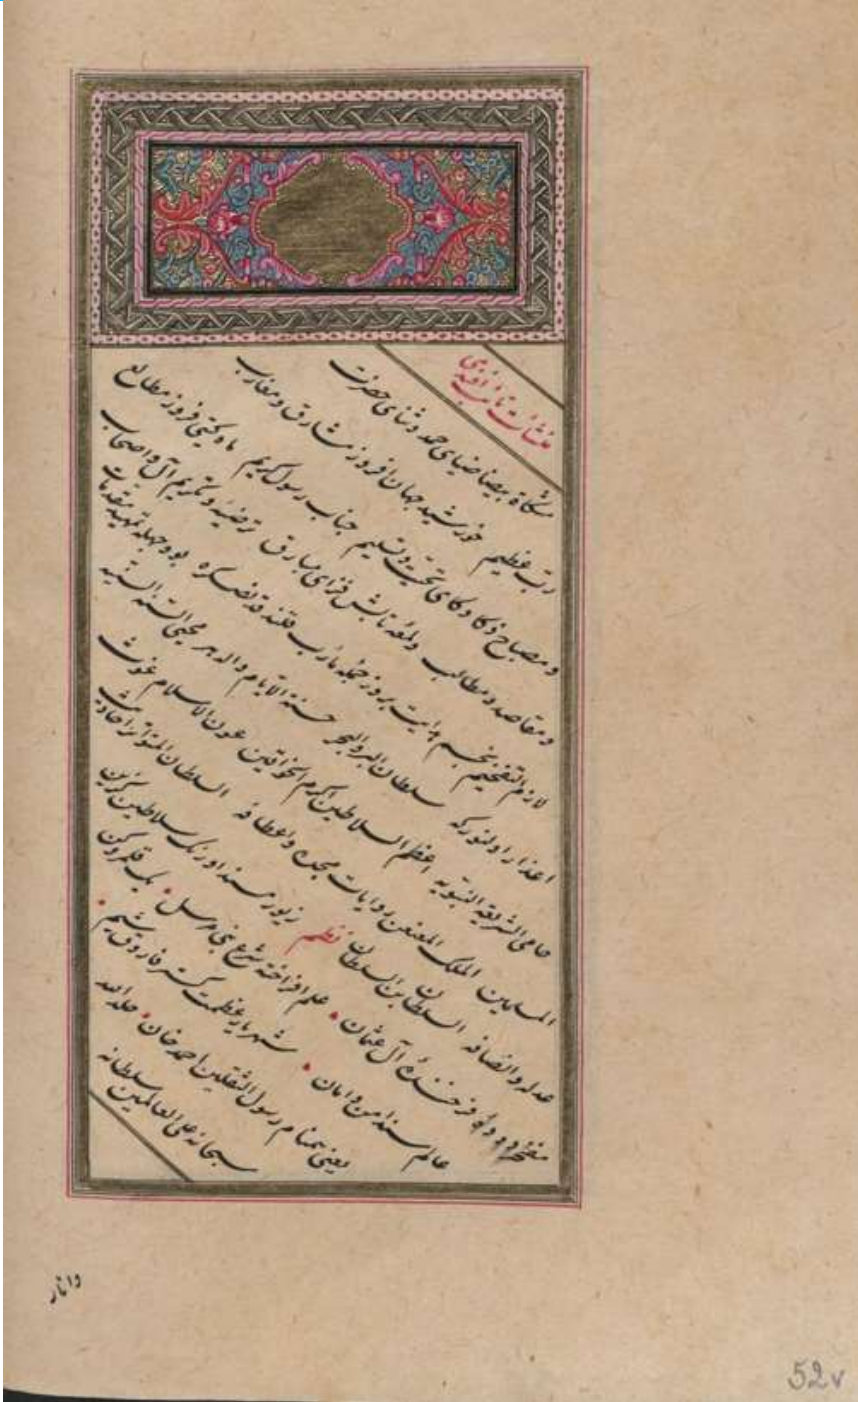 منشآت نائب افندی
مشکاة بیضا ضیای حمد و ثنای حضرت
رب عظیم خورشید جهان افروز مشارق و مغارب
و مصباح ذکا و کای تحیت و تسلیم جناب رسول کریم ماه کیتی فروز مطالع
و مقاصد و مطالب و لمعه تابش فزای بیارق ترضیه و تکریم آل و اصحاب
لازم التفخیم نجم هدایت بروز جمله مآرب قلندقدنصکره بو وجهله تمهید مقدمات
اعذار اولنور که سلطان البر والبحر حسنة الایام والدهر محیی السنة السنیه
حامی الشریعة النبویه اعظم السلاطین اکرم الخواقین عون الاسلام غوث
المسلمین الملک المعنعن روایات مجده و اعطافه السلطان المتواتر احادیث
عدله و انصافه السلطان بن السلطان نظم زیور مسند اورنک سلاطین کزین
مفخر دوده فرخنده آل عثمان علم افراخته شرع نبی مرسل یک قلمرو کن
عالم سند امن و امان شهریار عظمت کستر فاروق شیم
یعنی همنام رسول الثقلین احمد خان خلد الله
سبحانه علی العالمین سلطانه
و انار
52v